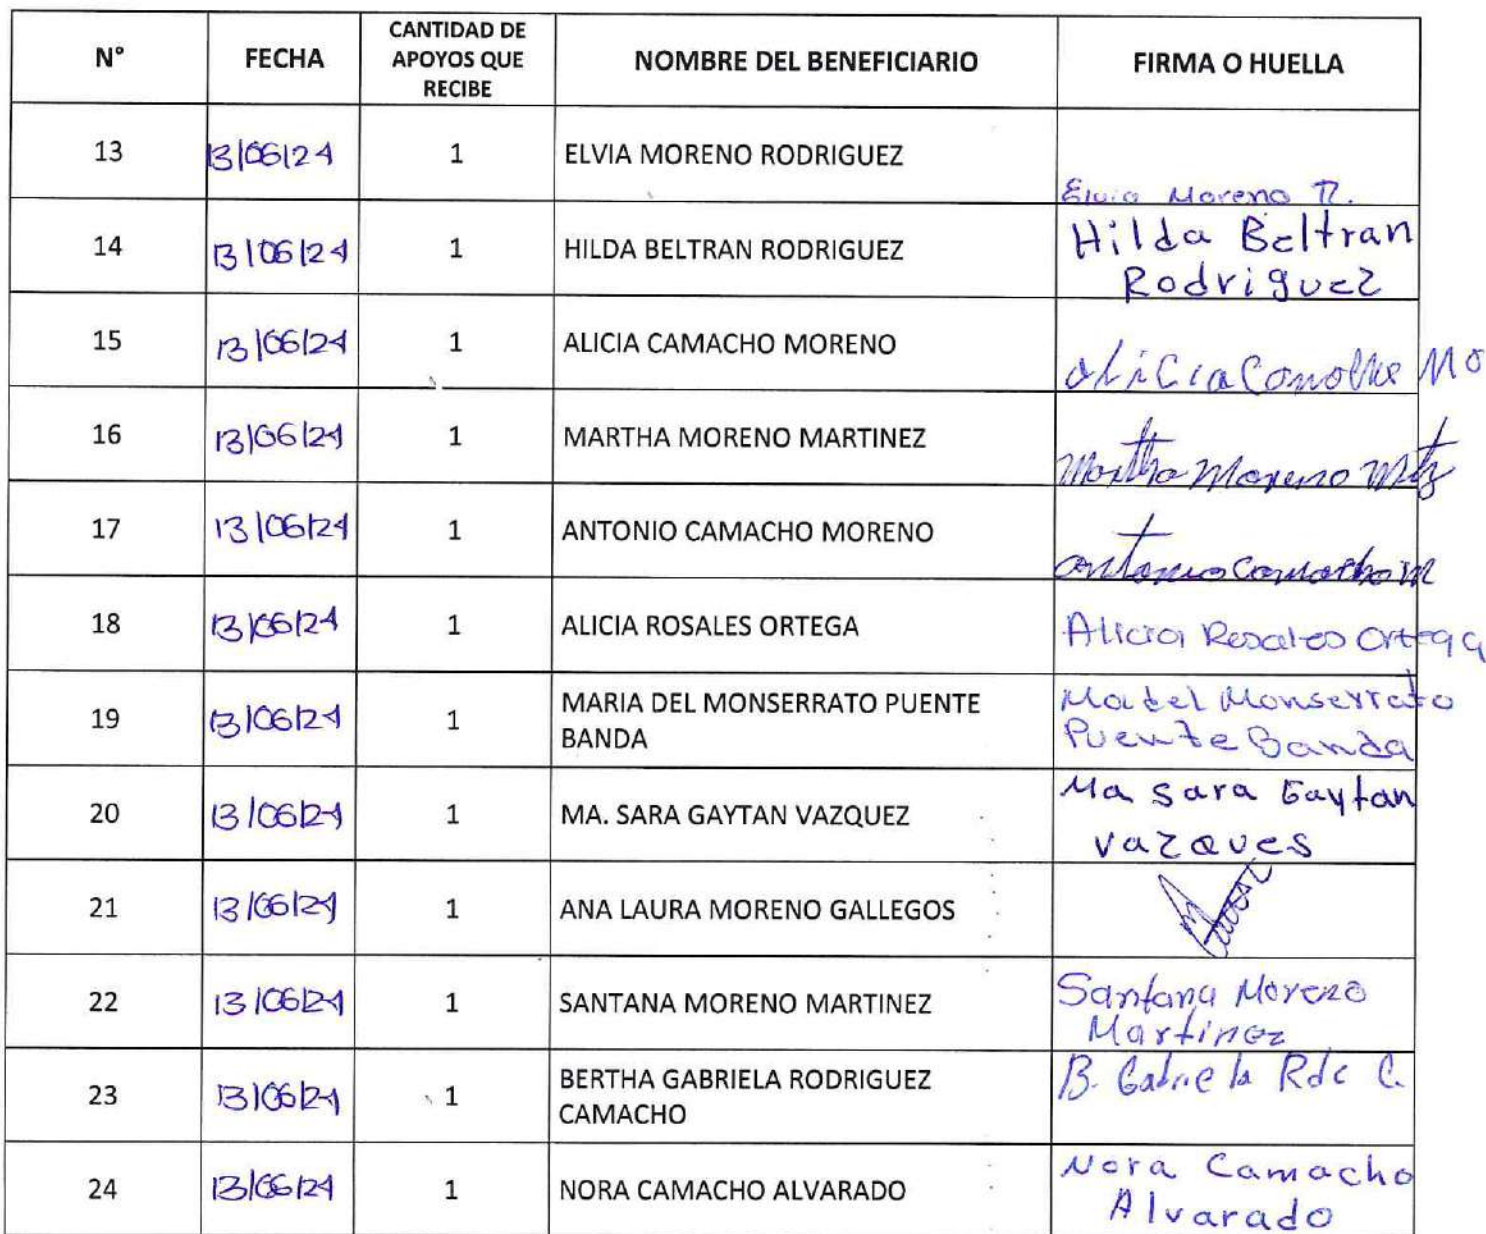 N° FECHA CANTIDAD DE APOYOS QUE RECIBE NOMBRE DEL BENEFICIARIO FIRMA O HUELLA
13 13/06/24 1 ELVIA MORENO RODRIGUEZ
Elvia Moreno R.
14 13/06/24 1 HILDA BELTRAN RODRIGUEZ Hilda Beltran
Rodriguez
15 13/06/24 1 ALICIA CAMACHO MORENO
Alicia Camacho Mo
16 13/06/24 1 MARTHA MORENO MARTINEZ
Martha Moreno Mtz
17 13/06/24 1 ANTONIO CAMACHO MORENO
Antonio Camacho M
18 13/06/24 1 ALICIA ROSALES ORTEGA Alicia Rosales Ortega
19 13/06/24 1 MARIA DEL MONSERRATO PUENTE Ma del Monserrato
BANDA Puente Banda
20 13/06/24 1 MA. SARA GAYTAN VAZQUEZ Ma Sara Gaytan
Vazques
21 13/06/24 1 ANA LAURA MORENO GALLEGOS
22 13/06/24 1 SANTANA MORENO MARTINEZ Santana Moreno
Martinez
23 13/06/24 1 BERTHA GABRIELA RODRIGUEZ B. Gabriela Rdc C.
CAMACHO
24 13/06/24 1 NORA CAMACHO ALVARADO Nora Camacho
Alvarado